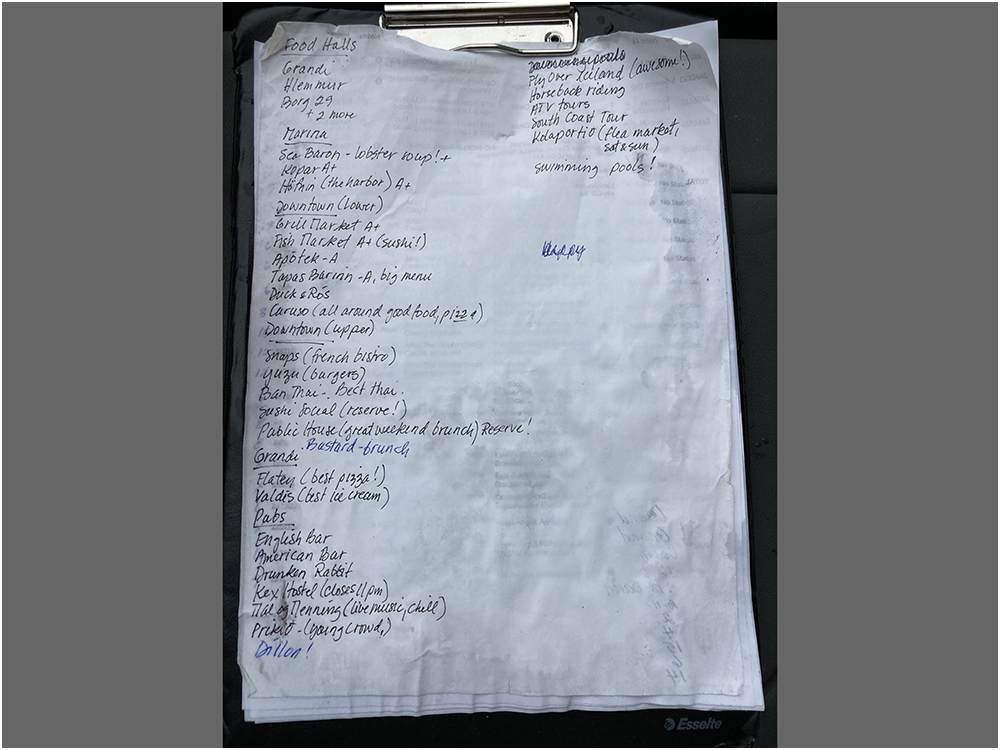 Food Halls
Grandi
Hlemmur
Borg 29
+ 2 more
Marina
Sea Baron - lobster soup! +
Kopar A+
Höfnin (the harbor) A+
Downtown (lower)
Grill Market A+
Fish Market A+ (sushi!)
Apótek - A
Tapas Barinn - A, big menu
Duck & Rós
Caruso (all around good food, pizza)
Downtown (upper)
Snaps (french bistro)
Yuzu (burgers)
Ban Thai - Best thai.
Sushi Social (reserve!)
Public House (great weekend brunch) Reserve!
Bastard - brunch
Grandi
Flatey (best pizza!)
Valdis (best ice cream)
Pubs
English Bar
American Bar
Drunken Rabbit
Kex Hostel (closes 11pm)
Mál og Menning (live music, chill)
Prikið - (young crowd,)
Dillon!
Fly Over Iceland (awesome!)
Horseback riding
ATV tours
South Coast Tour
Kolaportið (flea market,
sat & sun)
swimming pools!
Happy
Esselte